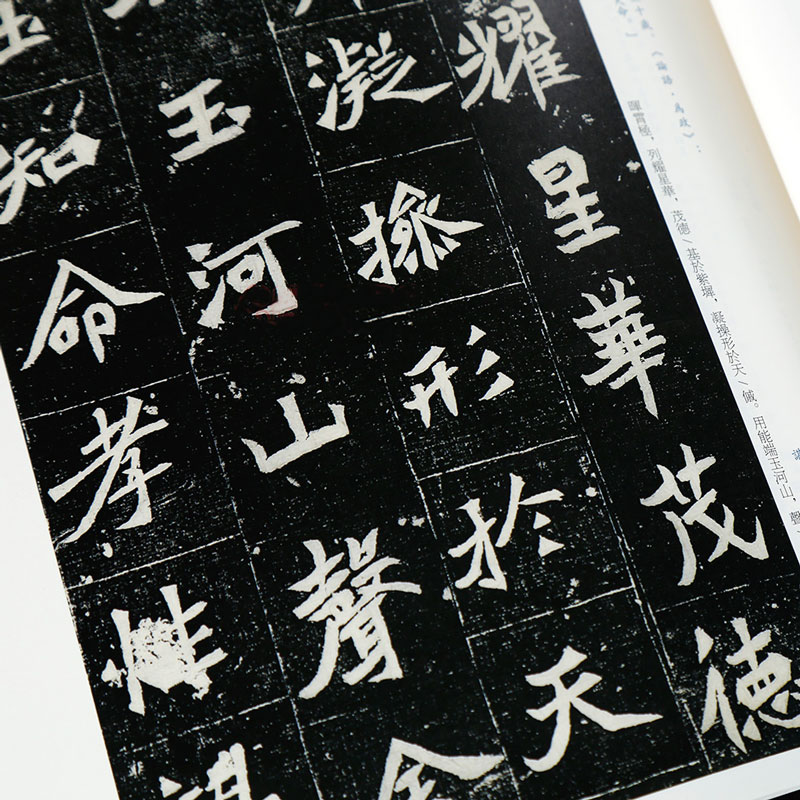 耀星華茂德
凝操形於天
玉河山聲
知命孝性
《論語·為政》:
暉霄極,列耀星華,茂德/基於紫墀,凝操形於天/。用能端玉河山,聲